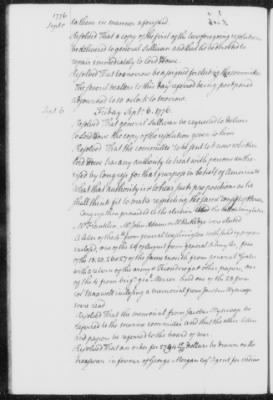 1776
Sept. 5
to them in manner aforesaid.
Resolved That a copy of the first of the foregoing resolutions
be delivered to general Sullivan and that he be directed to
repair immediately to Lord Howe.
Resolved That tomorrow be assigned for electing the committee
The several matters to this day referred being postponed
Adjourned to 10 o'clock to Morrow.
Sept. 6
Friday Sept. 6. 1776.
Resolved That general Sullivan be requested to deliver
to Lord Howe the copy of the resolution given to him
Resolved That the committee "to be sent to know whether
lord Howe has any authority to treat with persons autho-
rised by Congress for that purpose in behalf of America &
what that authority is & to hear such propositions as he
shall think fit to make respecting the same"
Congress then proceeded to the election & the
Mr Franklin, Mr John Adams & Mr Rutledge were elected
A letter of the from general Washington with sundry papers
enclosed, one of the of August from general
of the 18. 20. 26 & 27 of the same month from general Gates
with a return of the army at Ticonderoga & other papers, one
of the from brigr gen. Mercer
inclosing a memorial from
were read
Resolved That the memorial from be
referred to the committee and that the other letters
and papers be referred to the board of war.
Resolved That an order for dollars be drawn on the
treasurer in favour of George Morgan esqr Agent for indian